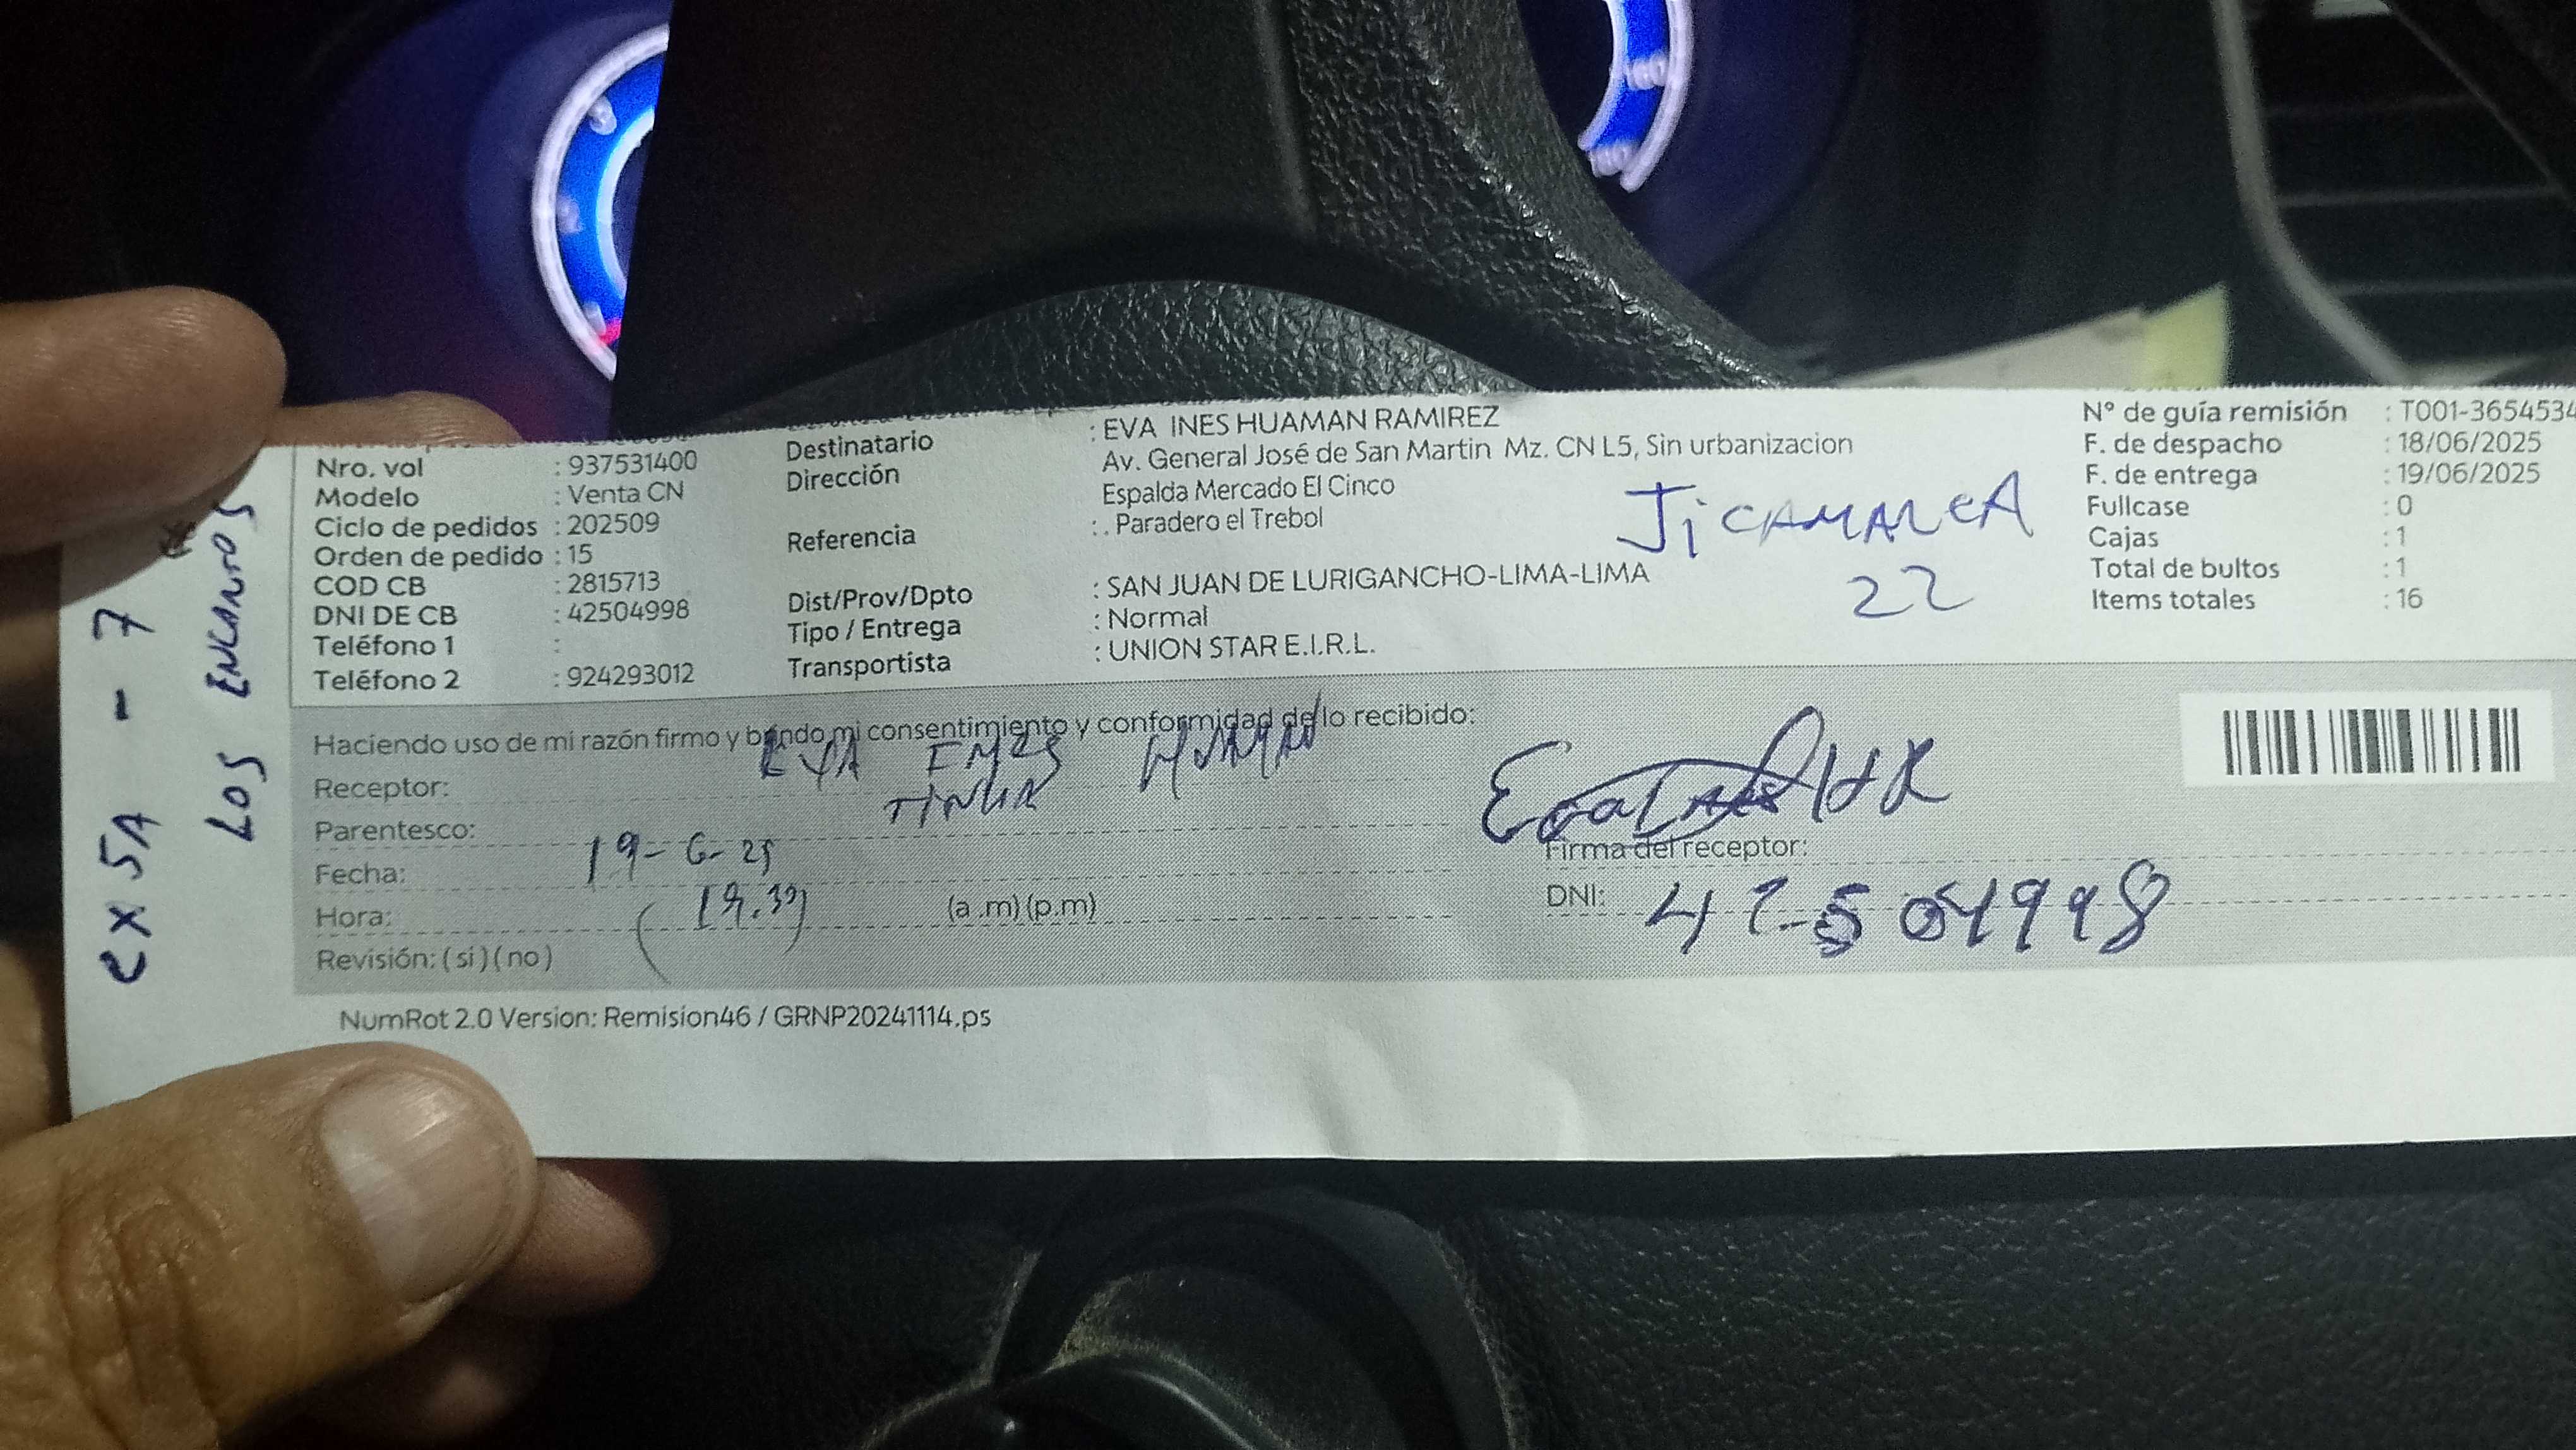 Nro. vol : 937531400
Modelo : Venta CN
Ciclo de pedidos : 202509
Orden de pedido : 15
COD CB : 2815713
DNI DE CB : 42504998
Teléfono 1 :
Teléfono 2 : 924293012
Destinatario : EVA INES HUAMAN RAMIREZ
Dirección Av. General José de San Martin Mz. CN L5, Sin urbanizacion
Espalda Mercado El Cinco
Referencia : . Paradero el Trebol
Dist/Prov/Dpto : SAN JUAN DE LURIGANCHO-LIMA-LIMA
Tipo / Entrega : Normal
Transportista : UNION STAR E.I.R.L.
JiCAMARCA
22
N° de guía remisión : T001-3654534
F. de despacho : 18/06/2025
F. de entrega : 19/06/2025
Fullcase : 0
Cajas : 1
Total de bultos : 1
Items totales : 16
Haciendo uso de mi razón firmo y brindo mi consentimiento y conformidad de lo recibido:
Receptor: EVA HUAMAN
Parentesco:
Fecha: 19-6-25
Hora: (a .m) (p.m)
Revisión: ( si ) ( no )
Firma del receptor:
DNI: 42504998
NumRot 2.0 Version: Remision46 / GRNP20241114.ps
CX 5A - 7
LOS ENCANTOS